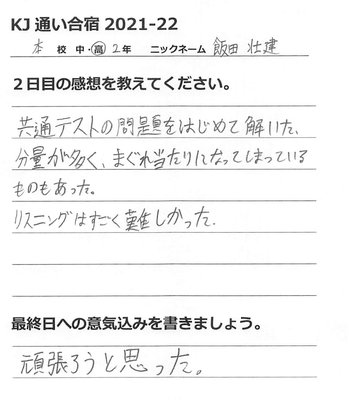 KJ 通い合宿 2021-22
本 校 中・高 2 年 ニックネーム 飯田 壮建
２日目の感想を教えてください。
共通テストの問題をはじめて解いた、
分量が多く、まぐれ当たりになってしまっている
ものもあった。
リスニングはすごく難しかった.
最終日への意気込みを書きましょう。
頑張ろうと思った。